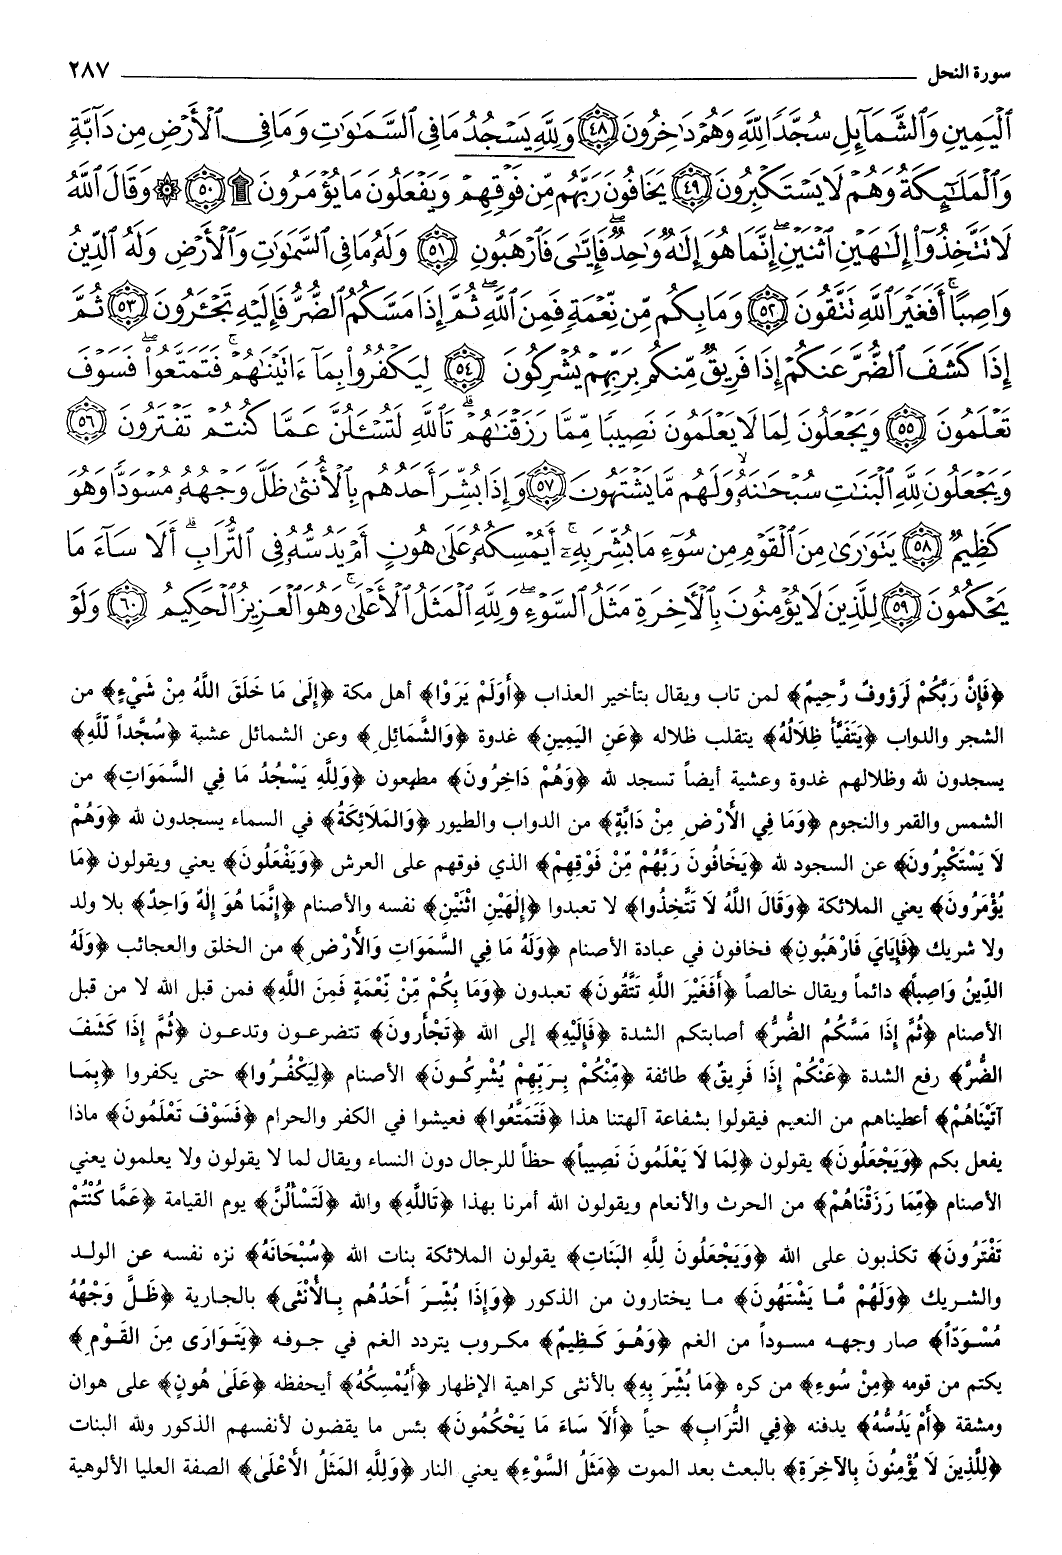 سورة النحل ٢٨٧
ٱلۡيَمِينِ وَٱلشَّمَآئِلِ سُجَّدٗا لِّلَّهِ وَهُمۡ دَٰخِرُونَ ٤٨ وَلِلَّهِۤ يَسۡجُدُۤ مَا فِي ٱلسَّمَٰوَٰتِ وَمَا فِي ٱلۡأَرۡضِ مِن دَآبَّةٖ
وَٱلۡمَلَٰٓئِكَةُ وَهُمۡ لَا يَسۡتَكۡبِرُونَ ٤٩ يَخَافُونَ رَبَّهُم مِّن فَوۡقِهِمۡ وَيَفۡعَلُونَ مَا يُؤۡمَرُونَ ۩ ٥٠ ۞ وَقَالَ ٱللَّهُ
لَا تَتَّخِذُوٓاْ إِلَٰهَيۡنِ ٱثۡنَيۡنِۖ إِنَّمَا هُوَ إِلَٰهٞ وَٰحِدٞ فَإِيَّٰيَ فَٱرۡهَبُونِ ٥١ وَلَهُۥ مَا فِي ٱلسَّمَٰوَٰتِ وَٱلۡأَرۡضِ وَلَهُ ٱلدِّينُ
وَاصِبًاۚ أَفَغَيۡرَ ٱللَّهِ تَتَّقُونَ ٥٢ وَمَا بِكُم مِّن نِّعۡمَةٖ فَمِنَ ٱللَّهِۖ ثُمَّ إِذَا مَسَّكُمُ ٱلضُّرُّ فَإِلَيۡهِ تَجۡـَٔرُونَ ٥٣ ثُمَّ
إِذَا كَشَفَ ٱلضُّرَّ عَنكُمۡ إِذَا فَرِيقٞ مِّنكُم بِرَبِّهِمۡ يُشۡرِكُونَ ٥٤ لِيَكۡفُرُواْ بِمَآ ءَاتَيۡنَٰهُمۡۚ فَتَمَتَّعُواْ ۖ فَسَوۡفَ
تَعۡلَمُونَ ٥٥ وَيَجۡعَلُونَ لِمَا لَا يَعۡلَمُونَ نَصِيبٗا مِّمَّا رَزَقۡنَٰهُمۡۗ تَٱللَّهِ لَتُسۡـَٔلُنَّ عَمَّا كُنتُمۡ تَفۡتَرُونَ ٥٦
وَيَجۡعَلُونَ لِلَّهِ ٱلۡبَنَٰتِ سُبۡحَٰنَهُۥ ۙ وَلَهُم مَّا يَشۡتَهُونَ ٥٧ وَإِذَا بُشِّرَ أَحَدُهُم بِٱلۡأُنثَىٰ ظَلَّ وَجۡهُهُۥ مُسۡوَدّٗا وَهُوَ
كَظِيمٞ ٥٨ يَتَوَٰرَىٰ مِنَ ٱلۡقَوۡمِ مِن سُوٓءِ مَا بُشِّرَ بِهِۦٓۚ أَيُمۡسِكُهُۥ عَلَىٰ هُونٍ أَمۡ يَدُسُّهُۥ فِي ٱلتُّرَابِۗ أَلَا سَآءَ مَا
يَحۡكُمُونَ ٥٩ لِلَّذِينَ لَا يُؤۡمِنُونَ بِٱلۡأٓخِرَةِ مَثَلُ ٱلسَّوۡءِۖ وَلِلَّهِ ٱلۡمَثَلُ ٱلۡأَعۡلَىٰۚ وَهُوَ ٱلۡعَزِيزُ ٱلۡحَكِيمُ ٦٠ وَلَوۡ
﴿فَإِنَّ رَبَّكُمْ لَرَؤوفٌ رَّحِيمٌ﴾ لمن تاب ويقال بتأخير العذاب ﴿أَوَلَمْ يَرَوْا﴾ أهل مكة ﴿إِلَىٰ مَا خَلَقَ اللَّهُ مِنْ شَيْءٍ﴾ من
الشجر والدواب ﴿يَتَفَيَّأُ ظِلَالُهُ﴾ يتقلب ظلاله ﴿عَنِ اليَمِينِ﴾ غدوة ﴿وَالشَّمَائِلِ﴾ وعن الشمائل عشية ﴿سُجَّداً لِّلَّهِ﴾
يسجدون لله وظلالهم غدوة وعشية أيضاً تسجد لله ﴿وَهُمْ دَاخِرُونَ﴾ مطيعون ﴿وَلِلَّهِ يَسْجُدُ مَا فِي السَّمَوَاتِ﴾ من
الشمس والقمر والنجوم ﴿وَمَا فِي الأَرْضِ مِنْ دَابَّةٍ﴾ من الدواب والطيور ﴿وَالمَلَائِكَةُ﴾ في السماء يسجدون لله ﴿وَهُمْ
لَا يَسْتَكْبِرُونَ﴾ عن السجود لله ﴿يَخَافُونَ رَبَّهُمْ مِّنْ فَوْقِهِمْ﴾ الذي فوقهم على العرش ﴿وَيَفْعَلُونَ﴾ يعني ويقولون ﴿مَا
يُؤْمَرُونَ﴾ يعني الملائكة ﴿وَقَالَ اللَّهُ لَا تَتَّخِذُوا﴾ لا تعبدوا ﴿إِلٰهَيْنِ اثْنَيْنِ﴾ نفسه والأصنام ﴿إِنَّمَا هُوَ إِلهٌ وَاحِدٌ﴾ بلا ولد
ولا شريك ﴿فَإِيَايَ فَارْهَبُونِ﴾ فخافون في عبادة الأصنام ﴿وَلَهُ مَا فِي السَّمَوَاتِ وَالأَرْضِ﴾ من الخلق والعجائب ﴿وَلَهُ
الدِّينُ وَاصِباً﴾ دائماً ويقال خالصاً ﴿أَفَغَيْرَ اللَّهِ تَتَّقُونَ﴾ تعبدون ﴿وَمَا بِكُمْ مِّنْ نِّعْمَةٍ فَمِنَ اللَّهِ﴾ فمن قبل الله لا من قبل
الأصنام ﴿ثُمَّ إِذَا مَسَّكُمُ الضُّرُّ﴾ أصابتكم الشدة ﴿فَإِلَيْهِ﴾ إلى الله ﴿تَجْأَرونَ﴾ تتضرعون وتدعون ﴿ثُمَّ إِذَا كَشَفَ
الضُّرَّ﴾ رفع الشدة ﴿عَنْكُمْ إِذَا فَرِيقٌ﴾ طائفة ﴿مِّنْكُمْ بِرَبِّهِمْ يُشْرِكُونَ﴾ الأصنام ﴿لِيَكْفُرُوا﴾ حتى يكفروا ﴿بِمَا
آتَيْنَاهُمْ﴾ أعطيناهم من النعيم فيقولوا بشفاعة آلهتنا هذا ﴿فَتَمَتَّعُوا﴾ فعيشوا في الكفر والحرام ﴿فَسَوْفَ تَعْلَمُونَ﴾ ماذا
يفعل بكم ﴿وَيَجْعَلُونَ﴾ يقولون ﴿لِمَا لَا يَعْلَمُونَ نَصِيباً﴾ حظاً للرجال دون النساء ويقال لما لا يقولون ولا يعلمون يعني
الأصنام ﴿مِّمَا رَزَقْنَاهُمْ﴾ من الحرث والأنعام ويقولون الله أمرنا بهذا ﴿تَاللَّهِ﴾ والله ﴿لَتَسْأَلُنَّ﴾ يوم القيامة ﴿عَمَّا كُنْتُمْ
تَفْتَرُونَ﴾ تكذبون على الله ﴿وَيَجْعَلُونَ لِلَّهِ البَنَاتِ﴾ يقولون الملائكة بنات الله ﴿سُبْحَانَهُ﴾ نزه نفسه عن الولد
والشريك ﴿وَلَهُمْ مَّا يَشْتَهُونَ﴾ ما يختارون من الذكور ﴿وَإِذَا بُشِّرَ أَحَدُهُم بِالأُنْثَى﴾ بالجارية ﴿ظَلَّ وَجْهُهُ
مُسْوَدّاً﴾ صار وجهه مسوداً من الغم ﴿وَهُوَ كَظِيمٌ﴾ مكروب يتردد الغم في جوفه ﴿يَتَوَارَى مِنَ القَوْمِ﴾
يكتم من قومه ﴿مِنْ سُوءِ﴾ من كره ﴿مَا بُشِّرَ بِهِ﴾ بالأنثى كراهية الإظهار ﴿أَيُمْسِكُهُ﴾ أيحفظه ﴿عَلَىٰ هُونٍ﴾ على هوان
ومشقة ﴿أَمْ يَدُسُّهُ﴾ يدفنه ﴿فِي التُّرَابِ﴾ حياً ﴿أَلَا سَاءَ مَا يَحْكُمُونَ﴾ بئس ما يقضون لأنفسهم الذكور ولله البنات
﴿لِلَّذِينَ لَا يُؤْمِنُونَ بِالآخِرَةِ﴾ بالبعث بعد الموت ﴿مَثَلُ السَّوْءِ﴾ يعني النار ﴿وَلِلَّهِ المَثَلُ الأَعْلَى﴾ الصفة العليا الألوهية